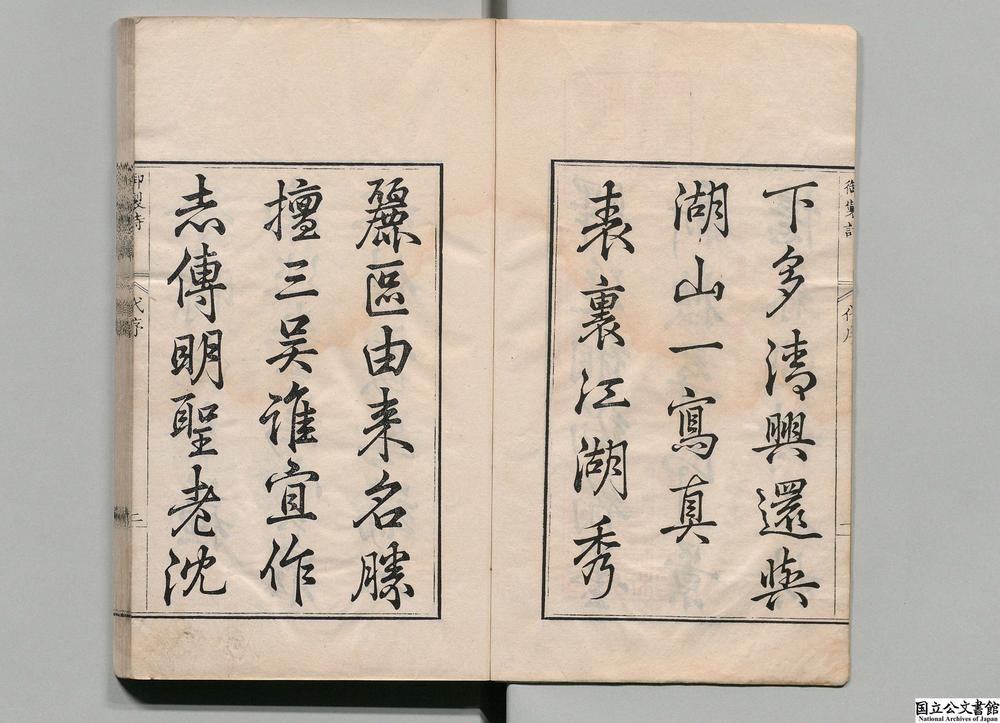 下多清興還與
湖山一寫真
表裏江湖秀
麗區由來名勝
擅三吳誰宜作
志傳明聖老沈
御製詩
代序
二
国立公文書館
National Archives of Japan